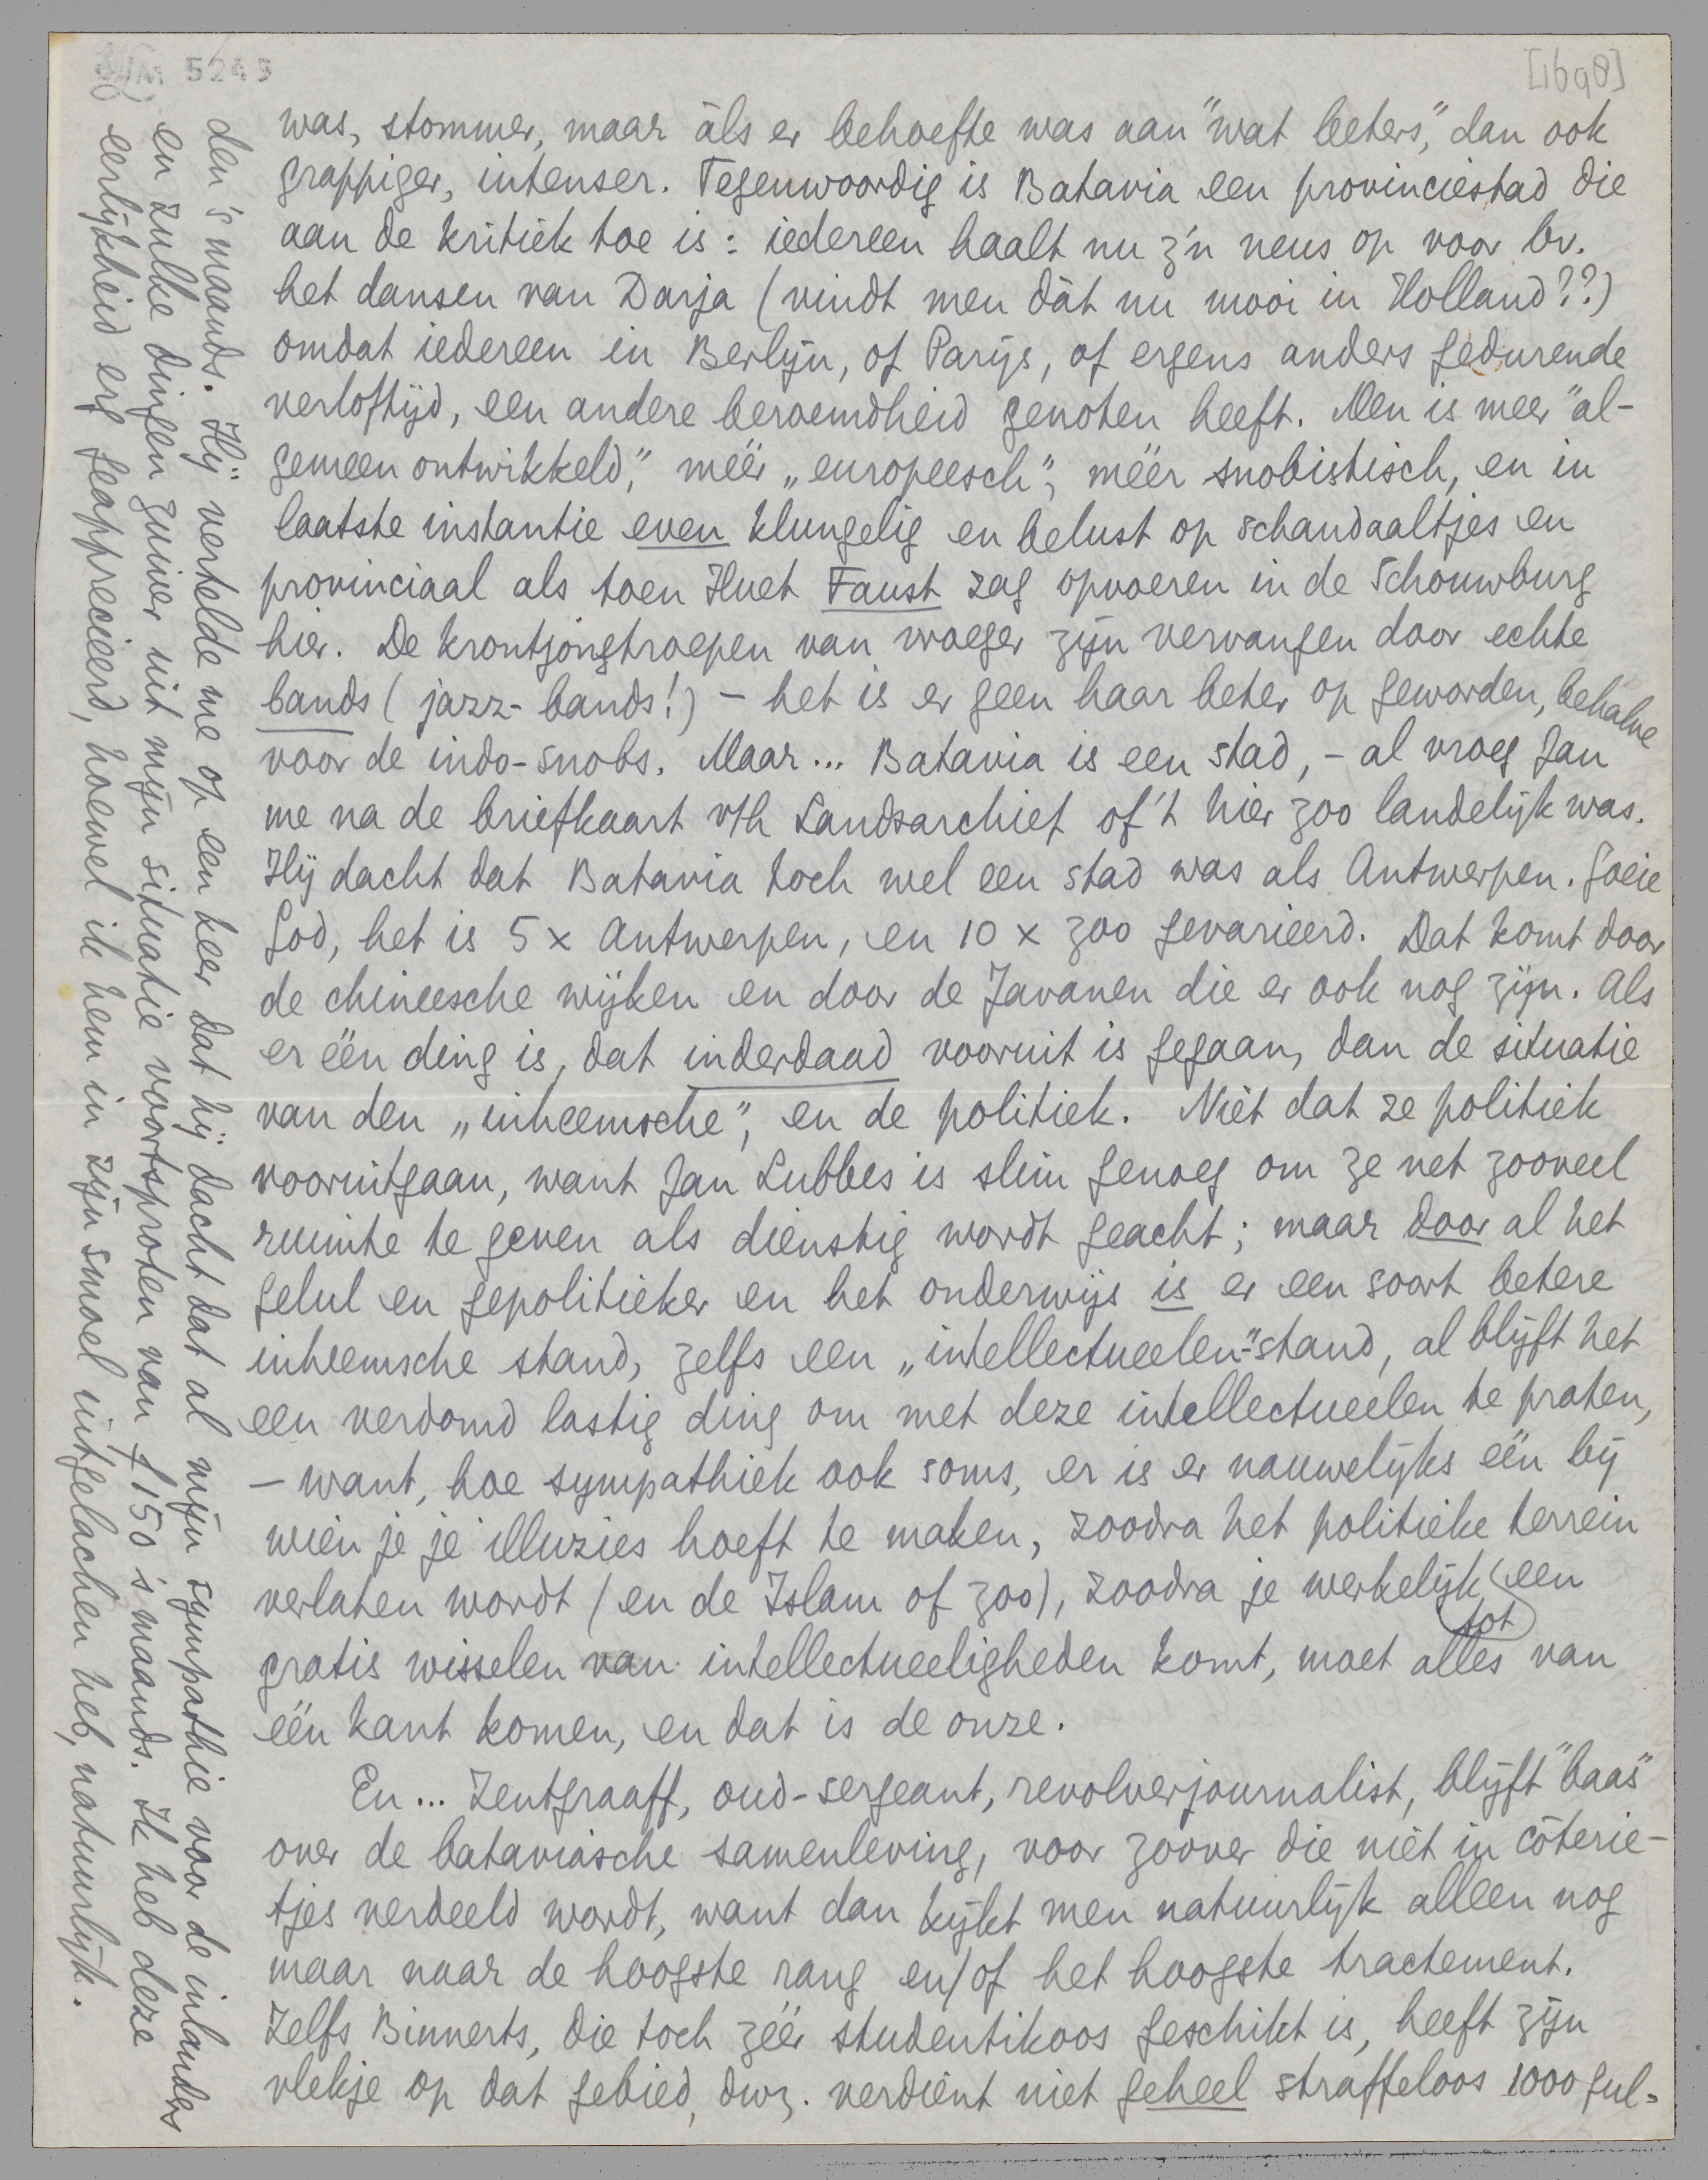 LM 5243
[1698]
was, stommer, maar àls er behoefte was aan "wat beters," dan ook
grappiger, intenser. Tegenwoordig is Batavia een provinciestad die
aan de kritiek toe is: iedereen haalt nu z'n neus op voor bv.
het dansen van Darja (vindt men dàt nu mooi in Holland??)
omdat iedereen in Berlijn, of Parijs, of ergens anders gedurende
verloftijd, een andere beroemdheid genoten heeft. Men is meer "al-
gemeen ontwikkeld," méér „europeesch", méér snobistisch, en in
laatste instantie even klungelig en belust op schandaaltjes en
provinciaal als toen Huet Faust zag opvoeren in de Schouwburg
hier. De krontjongtroepen van vroeger zijn vervangen door echte
bands (jazz-bands!) – het is er geen haar beter op geworden, behalve
voor de indo-snobs. Maar... Batavia is een stad, – al vroeg Jan
me na de briefkaart v/h Landsarchief of 't hier zoo landelijk was.
Hij dacht dat Batavia toch wel een stad was als Antwerpen. Goeie
God, het is 5 x Antwerpen, en 10 x zoo gevarieerd. Dat komt door
de chineesche wijken en door de Javanen die er ook nog zijn. Als
er één ding is, dat inderdaad vooruit is gegaan, dan de situatie
van den „inheemsche", en de politiek. Niet dat ze politiek
vooruitgaan, want Jan Lubbes is slim genoeg om ze net zooveel
ruimte te geven als dienstig wordt geacht; maar door al het
gelul en gepolitieker en het onderwijs is er een soort betere
inheemsche stand, zelfs een „intellectueelen"-stand, al blijft het
een verdomd lastig ding om met deze intellectueelen te praten,
– want, hoe sympathiek ook soms, er is er nauwelijks één bij
wien je je illuzies hoeft te maken, zoodra het politieke terrein
verlaten wordt (en de Islam of zoo), zoodra je werkelijk tot een
gratis wisselen van intellectueeligheden komt, moet alles van
één kant komen, en dat is de onze.
En... Zentgraaff, oud-sergeant, revolverjournalist, blijft "baas"
over de bataviasche samenleving, voor zoover die niet in côterie-
tjes verdeeld wordt, want dan kijkt men natuurlijk alleen nog
maar naar de hoogste rang en/of het hoogste tractement.
Zelfs Binnerts, die toch zéér studentikoos geschikt is, heeft zijn
vlekje op dat gebied, dwz. verdient niet geheel straffeloos 1000 gul-
den 's maands. Hij vertelde me op een keer dat hij dacht dat al mijn sympathie voor de inlanders
en zulke dingen zuiver uit mijn situatie voortsproten van ƒ 150 's maands. Ik heb deze
eerlijkheid erg geapprecieerd, hoewel ik hem in zijn smoel uitgelachen heb, natuurlijk.